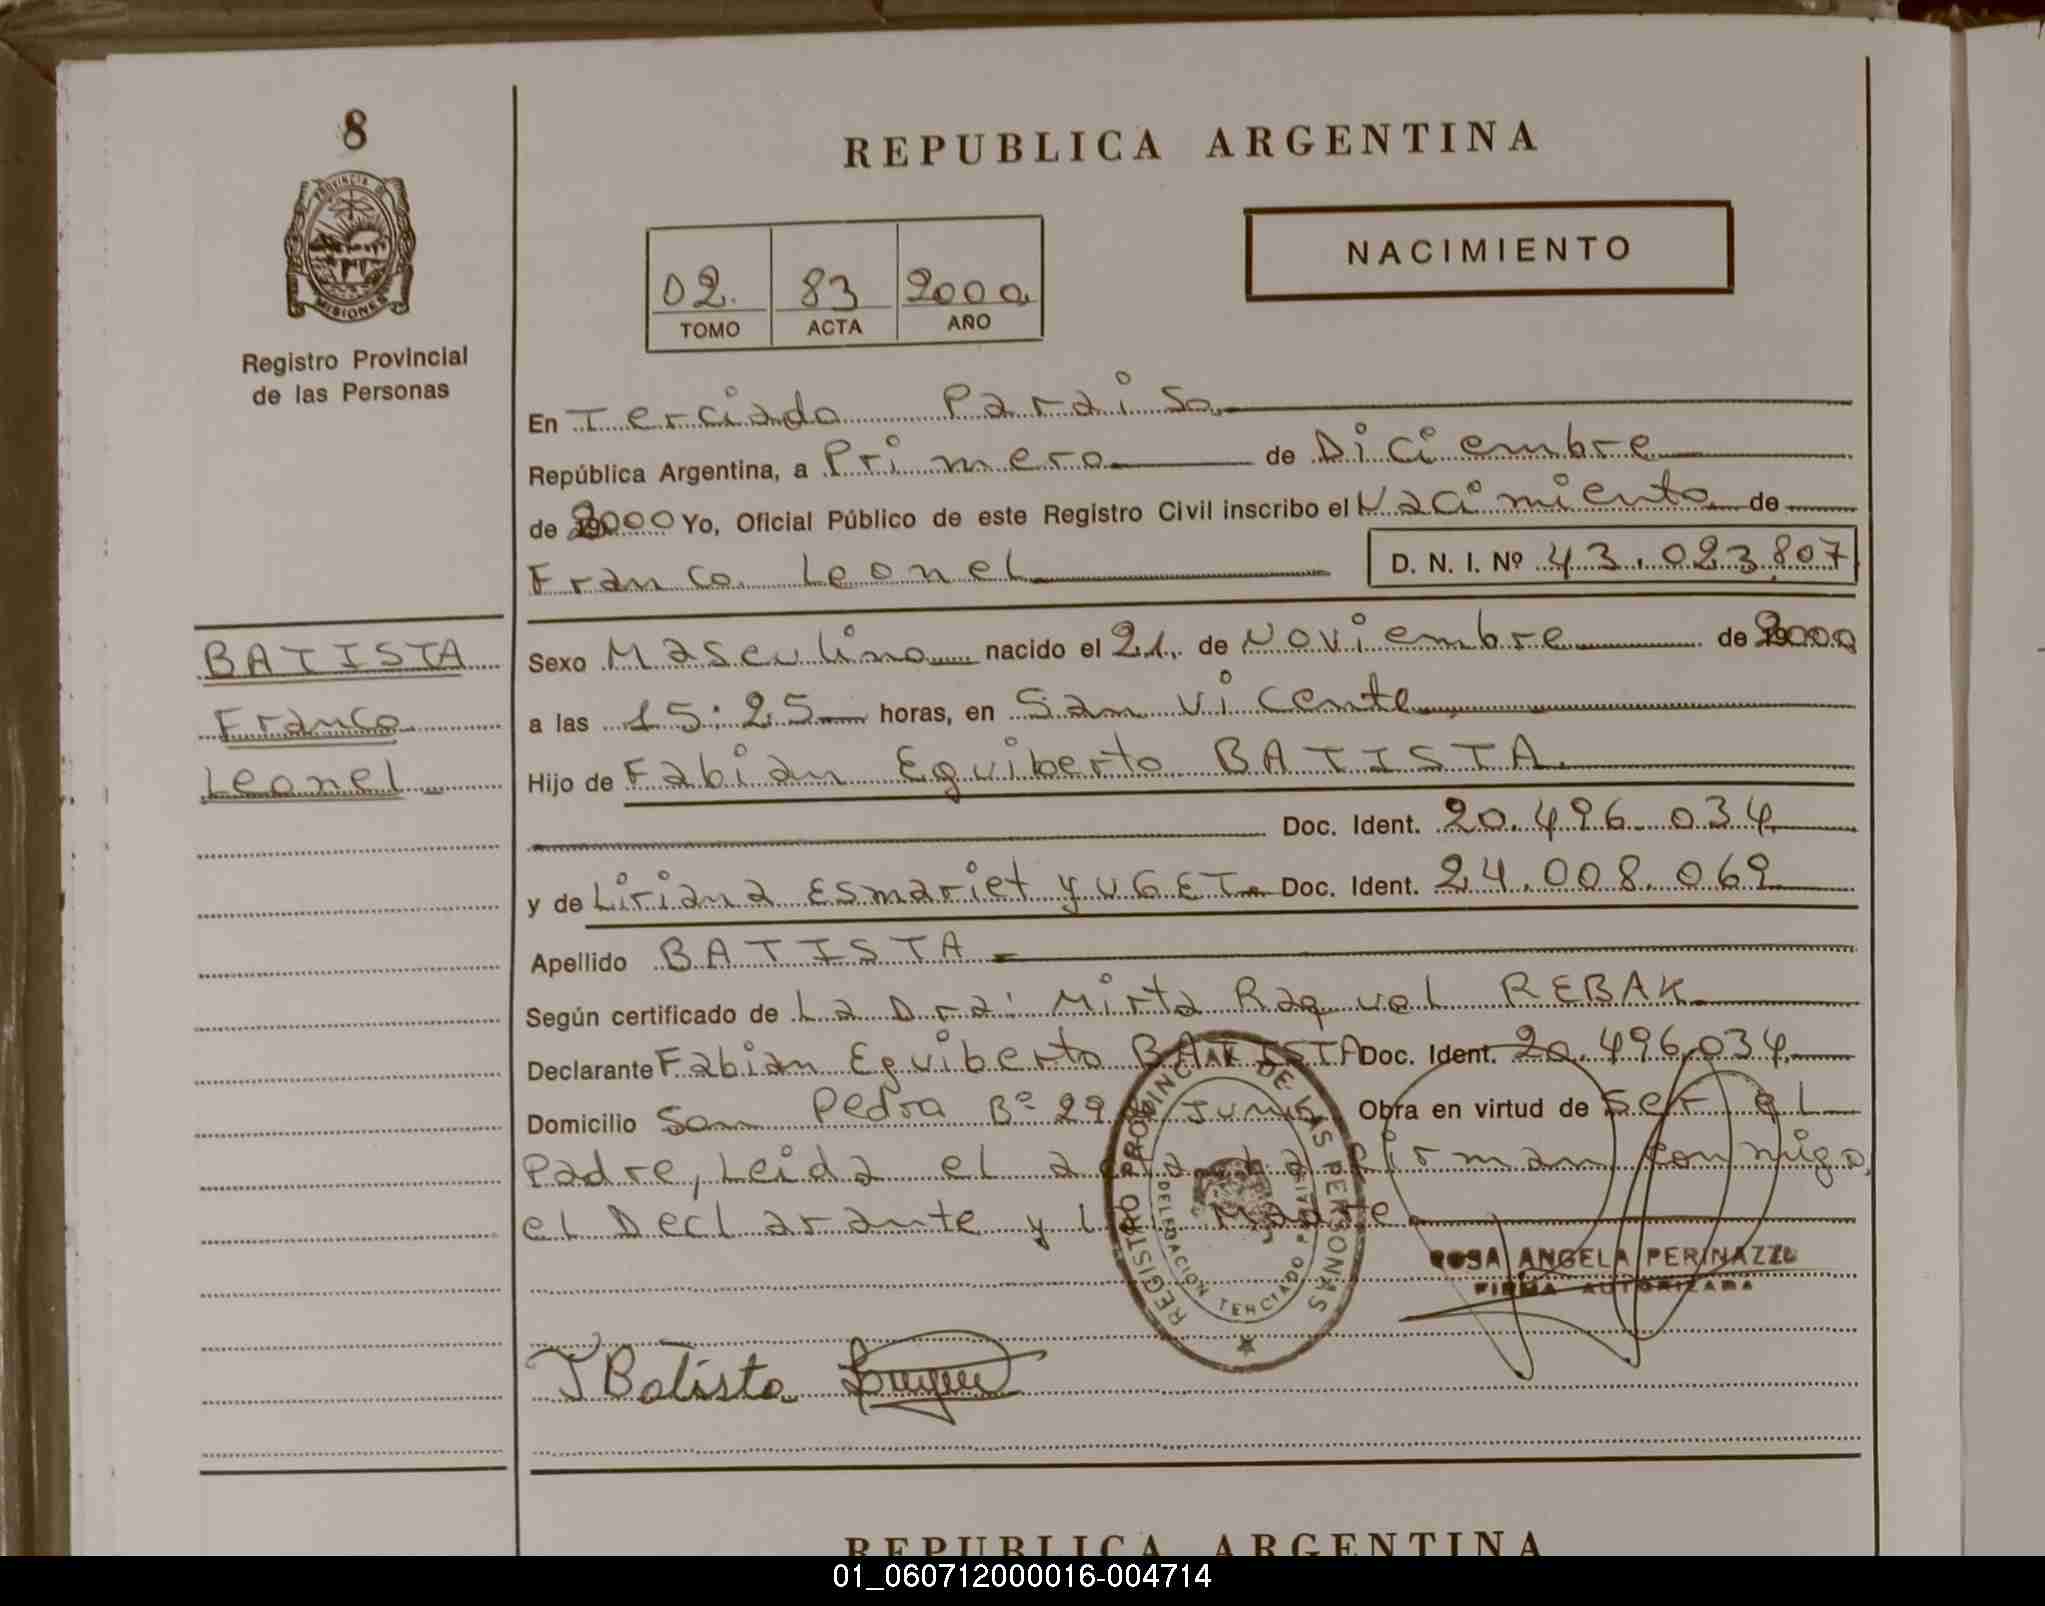 8
PROVINCIA DE
MISIONES
Registro Provincial
de las Personas
BATISTA
Franco
Leonel
REPUBLICA ARGENTINA
02. 83 2000
TOMO ACTA AÑO
NACIMIENTO
En Terciado Paraiso
República Argentina, a Primero de Diciembre
de 2000 Yo, Oficial Público de este Registro Civil inscribo el Nacimiento de
Franco Leonel D. N. I. Nº 43.023.807
Sexo Masculino nacido el 21. de Noviembre de 2000
a las 15:25 horas, en San Vicente
Hijo de Fabian Eguiberto BATISTA.
Doc. Ident. 20.496.034
y de Liriana Esmariet YUGET. Doc. Ident. 24.008.069
Apellido BATISTA
Según certificado de La Dra: Mirta Raquel REBAK
Declarante Fabian Eguiberto BATISTA Doc. Ident. 20.496.034
Domicilio San Pedro Bº 29 Junio Obra en virtud de ser el
Padre, Leida el acta la firman conmigo,
el Declarante y la Madre
REGISTRO PROVINCIAL DE LAS PERSONAS
DELEGACION TERCIADO PARAISO
ROSA ANGELA PERINAZZO
FIRMA AUTORIZADA
Batista
REPUBLICA ARGENTINA
01_060712000016-004714